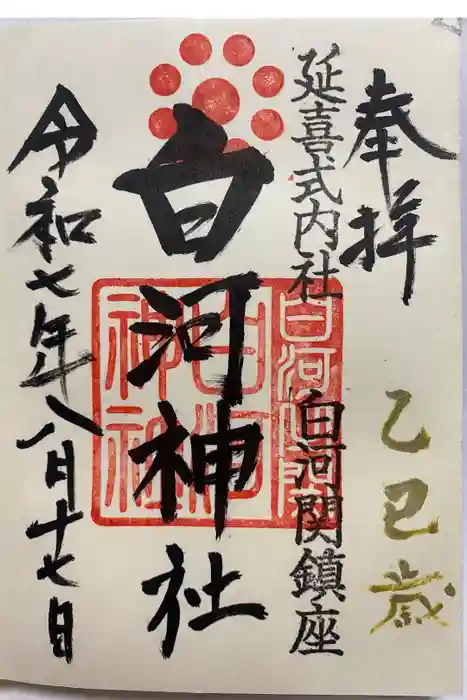 奉拝
乙巳歳
延喜式内社 白河関鎮座
白河神社
令和七年八月十七日